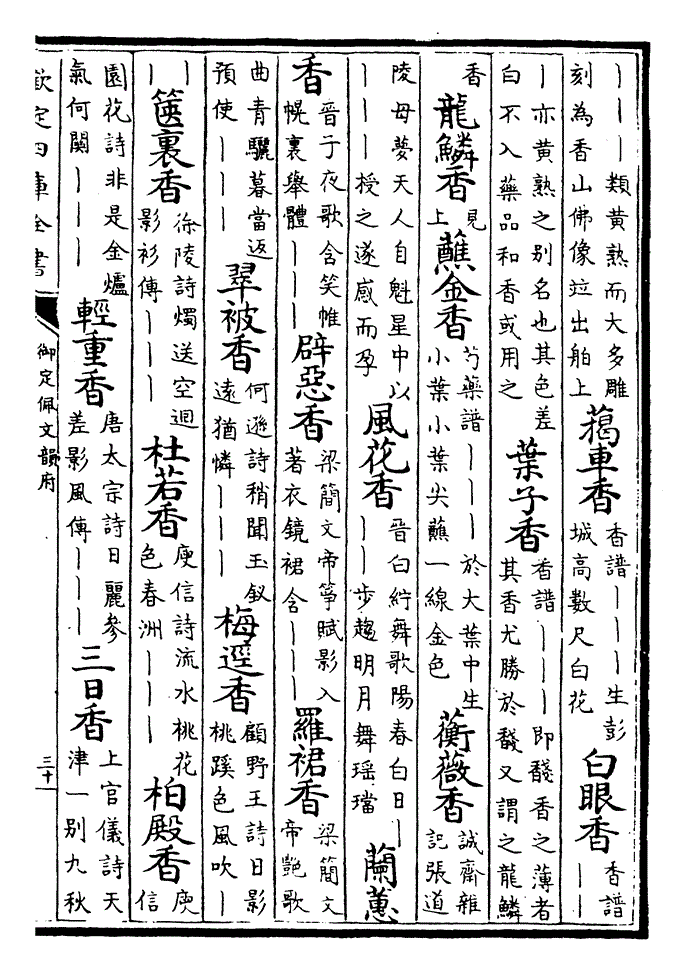 ｜｜｜類黄熟而大多雕刻為香山佛像竝出舶上 藒車香 香譜｜｜｜生彭城高數尺白花 白眼香 香譜｜｜
｜亦黄熟之别名也其色差白不入藥品和香或用之 葉子香 香譜｜｜｜即馢香之薄者其香尤勝於馢又謂之龍鱗
香 龍鱗香 見上 蘸金香 芍藥譜｜｜｜於大葉中生小葉小葉尖蘸一線金色 蘅薇香 誠齋雜記張道
陵母夢天人自魁星中以｜｜｜授之遂感而孕 風花香 晉白紵舞歌陽春白日｜｜｜步趨明月舞瑶璫 蘭蕙
香 晉子夜歌含笑帷幌裏舉體｜｜｜ 辟惡香 梁簡文帝箏賦影入著衣鏡裙含｜｜｜ 羅裙香 梁簡文帝艶歌
曲青驪暮當返預使｜｜｜ 翠被香 何遜詩稍聞玉釵遠猶憐｜｜｜ 梅逕香 顧野王詩日影桃蹊色風吹｜
｜｜ 篋裏香 徐陵詩燭送空迴影衫傳｜｜｜ 杜若香 庾信詩流水桃花色春洲｜｜｜ 柏殿香 庾信
園花詩非是金爐氣何關｜｜｜ 輕重香 唐太宗詩日麗參差影風傳｜｜｜ 三日香 上官儀詩天津一别九秋
欽定四庫全書 御定佩文韻府 三十